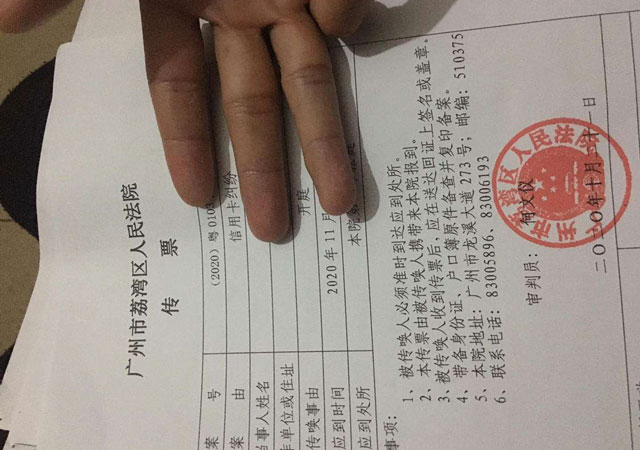 广州市荔湾区人民法院
传 票
案 号 (2020)粤0103
案 由 信用卡纠纷
当事人姓名
单位或住址
传唤事由 开庭
应到时间 2020年11月
应到处所 本院第
事项:
1、被传唤人必须准时到达应到处所。
2、本传票由被传唤人携带来本院报到。
3、被传唤人收到传票后,应在送达回证上签名或盖章。
4、带备身份证、户口簿原件备查并复印备案。
5、本院地址:广州市龙溪大道273号;邮编:510375
6、联系电话:83005896、83006193
审判员: 何文仪
二〇二〇年十月 十一日